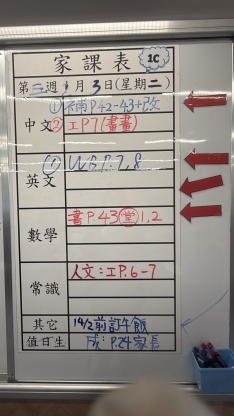 家課表 1C
第二週 月3日(星期二)
中文
① 補P.42-43+改
② 工P7(書書)
英文
① WB P.7, 8
數學
書P.43(堂)1,2
常識
人文:工P.6-7
其它
14/2前訂午飯
值日生
成:P.24家長